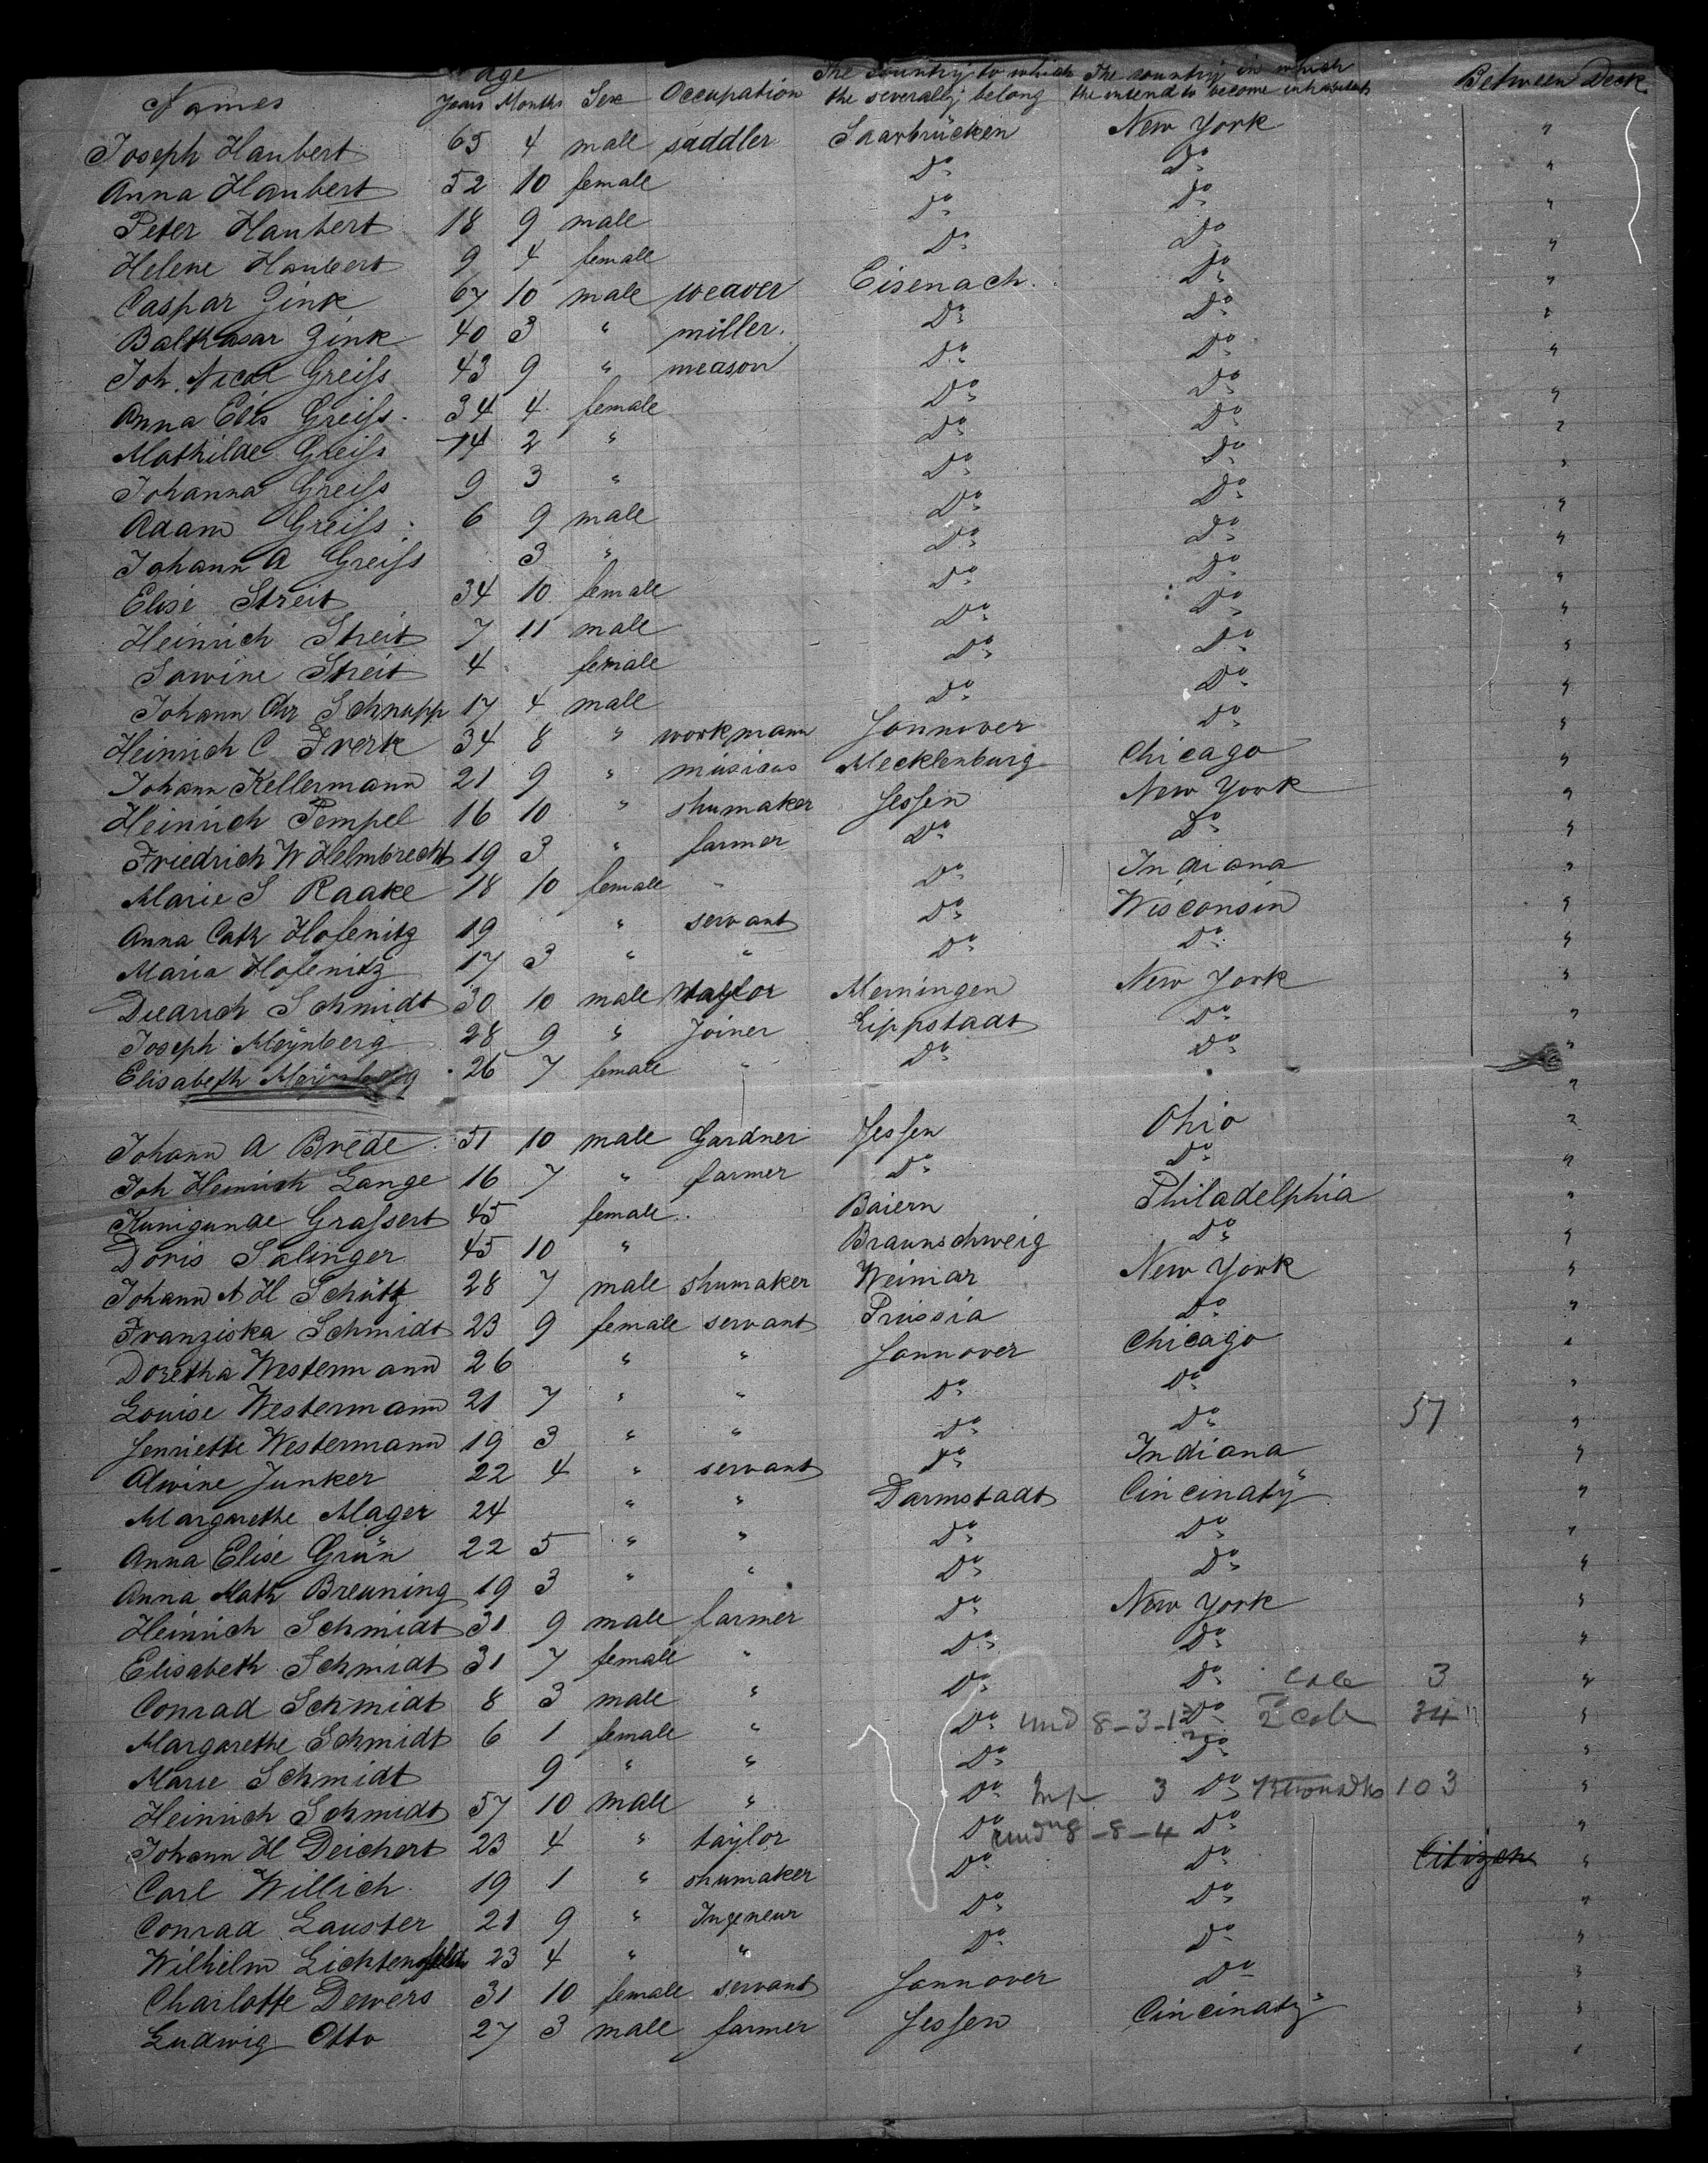 Names Age Years Months Sex Occupation The country to which the severally belong The country in which the intend to become inhabitants Between Deck
Joseph Haubert 65 4 male saddler Saarbrücken New York "
Anna Haubert 52 10 female Do Do "
Peter Haubert 18 9 male Do Do "
Helene Haubert 9 4 female Do Do "
Caspar Zink 67 10 male weaver Eisenach Do "
Balthasar Zink 40 3 " miller Do Do "
Joh. Nicol Greiß 43 9 " meason Do Do "
Anna Elis Greiß 34 4 female Do Do "
Mathilde Greiß 14 2 " Do Do "
Johanna Greiß 9 3 " Do Do "
Adam Greiß 6 9 male Do Do "
Johann A Greiß 3 " Do Do "
Elise Streit 34 10 female Do Do "
Heinrich Streit 7 11 male Do Do "
Sawine Streit 4 female Do Do "
Johann Chr Schnupp 17 4 male Do Do "
Heinrich C Frerk 34 8 " workmann Hannover Do "
Johann Kellermann 21 9 " musicus Mecklenburg Chicago "
Heinrich Pempel 16 10 " shumaker Hessen New York "
Friedrich W Helmbrecht 19 3 " farmer Do Do "
Marie S Raake 18 10 female " Do Indiana "
Anna Cath Hofenitz 19 " servant Do Wisconsin "
Maria Hofenitz 17 3 " " Do Do "
Diedrich Schmidt 30 10 male taylor Meiningen New York "
Joseph Meÿnberg 28 9 " Joiner Lippstadt Do "
Elisabeth Meÿnberg 26 7 female " Do Do "
Johann A Brede 51 10 male Gardner Hessen Ohio "
Joh Heinrich Lange 16 7 " farmer Do Do "
Kunigunde Graßert 45 female Baiern Philadelphia "
Doris Salinger 45 10 " Braunschweig Do "
Johann A H Schütz 28 7 male shumaker Weimar New York "
Franziska Schmidt 23 9 female servant Prussia Do "
Doretha Westermann 26 " " Hannover Chicago "
Louise Westermann 21 7 " " Do Do "
Henriette Westermann 19 3 " " Do Do 57 "
Alwine Junker 22 4 " servant Do Indiana "
Margarethe Mager 24 " " Darmstadt Cincinaty "
Anna Elise Grün 22 5 " " Do Do "
Anna Kath Breuning 19 3 " " Do Do "
Heinrich Schmidt 31 9 male farmer Do New York "
Elisabeth Schmidt 31 7 female " Do Do "
Conrad Schmidt 8 3 male " Do Do 3 "
Margarethe Schmidt 6 1 female " Do und 8-3-1 Do 2 34 "
Marie Schmidt 9 " " Do Do "
Heinrich Schmidt 57 10 male " Do 3 Do 103 "
Johann H Deichert 23 4 " taylor Do und 8-8-4 Do "
Carl Willich 19 1 " shumaker Do Do Citizen "
Conrad Lauster 21 9 " Ingeneur Do Do "
Wilhelm Lichtenfeld 23 4 " " Do Do "
Charlotte Dewers 31 10 female servant Hannover Do "
Ludwig Otto 27 3 male farmer Hessen Cincinaty "